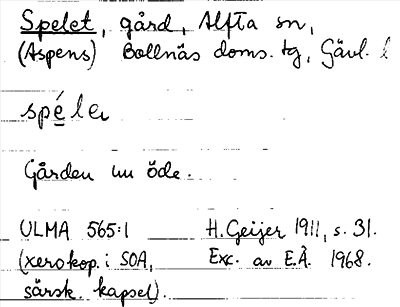 Spelet, gård, Alfta sn,
(Aspens) Bollnäs doms. tg, Gävl. l
spe̱le
Gården nu öde.
ULMA 565:1 H. Geijer 1911, s. 31.
(xerokop. i SOA, Exc. av E.Å. 1968.
särsk. kapsel).